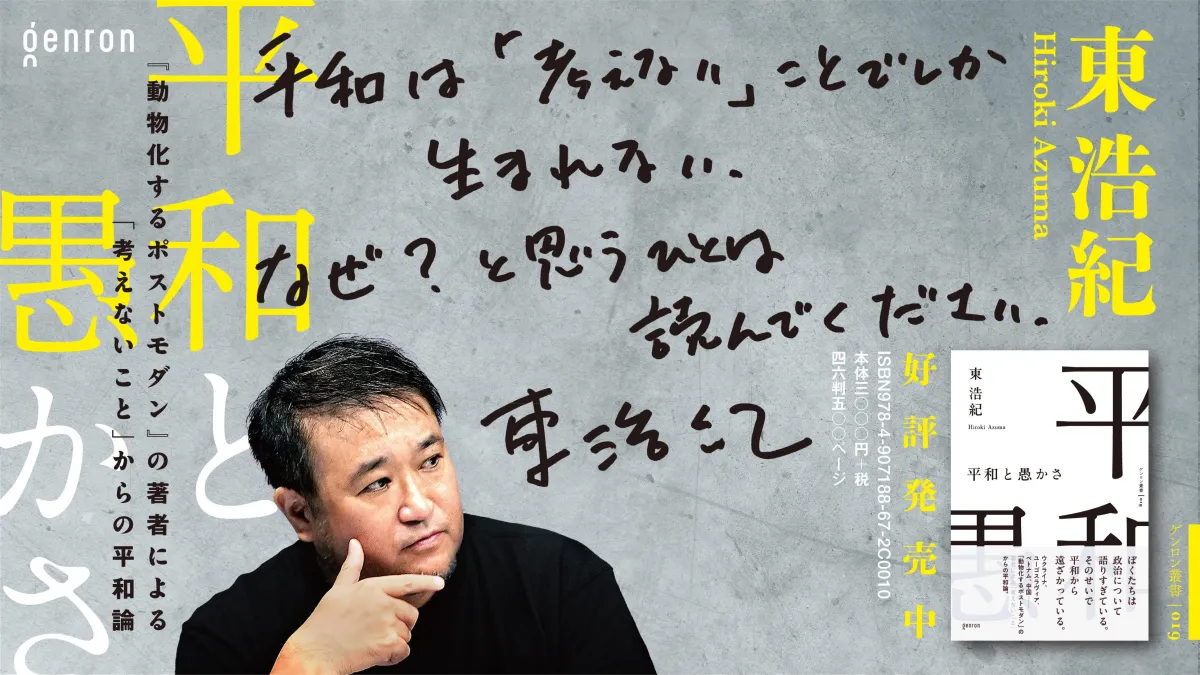 genron
平和と
愚かさ
『動物化するポストモダン』の著者による
「考えないこと」からの平和論
平和は「考えない」ことでしか
生まれない.
なぜ?と思うひとは
読んでください.
東浩紀
東浩紀
Hiroki Azuma
好評発売中
ISBN978-4-907188-67-2C0010
本体三〇〇〇円+税
四六判五〇〇ページ
東浩紀
Hiroki Azuma
平和と愚かさ
平和
愚
ゲンロン叢書|019
ぼくたちは
政治について
語りすぎている。
そのせいで
平和から
遠ざかっている。
ウクライナ、
ユーゴスラヴィア、
ベトナム、中国
『動物化するポストモダン』の
からの平和論。
genron
ゲンロン叢書|019